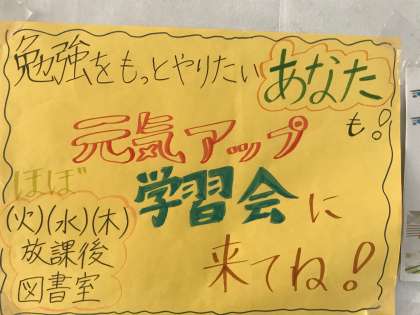 勉強をもっとやりたいあなた
も!
元気アップ
学習会に
来てね!
ほぼ
(火)(水)(木)
放課後
図書室